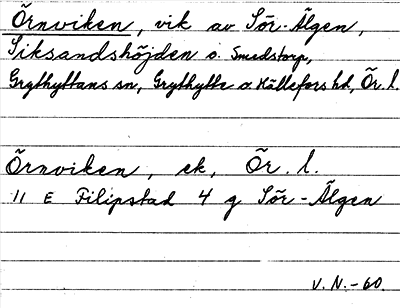 Örnviken, vik av Sör-Älgen,
Siksandshöjden o. Smedstorp,
Grythyttans sn, Grythytte o Hällefors hd, Ör. l.
Örnviken, ek, Ör. l.
11 E Filipstad 4 g Sör-Älgen
V. N. - 60.